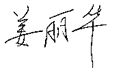 姜丽华